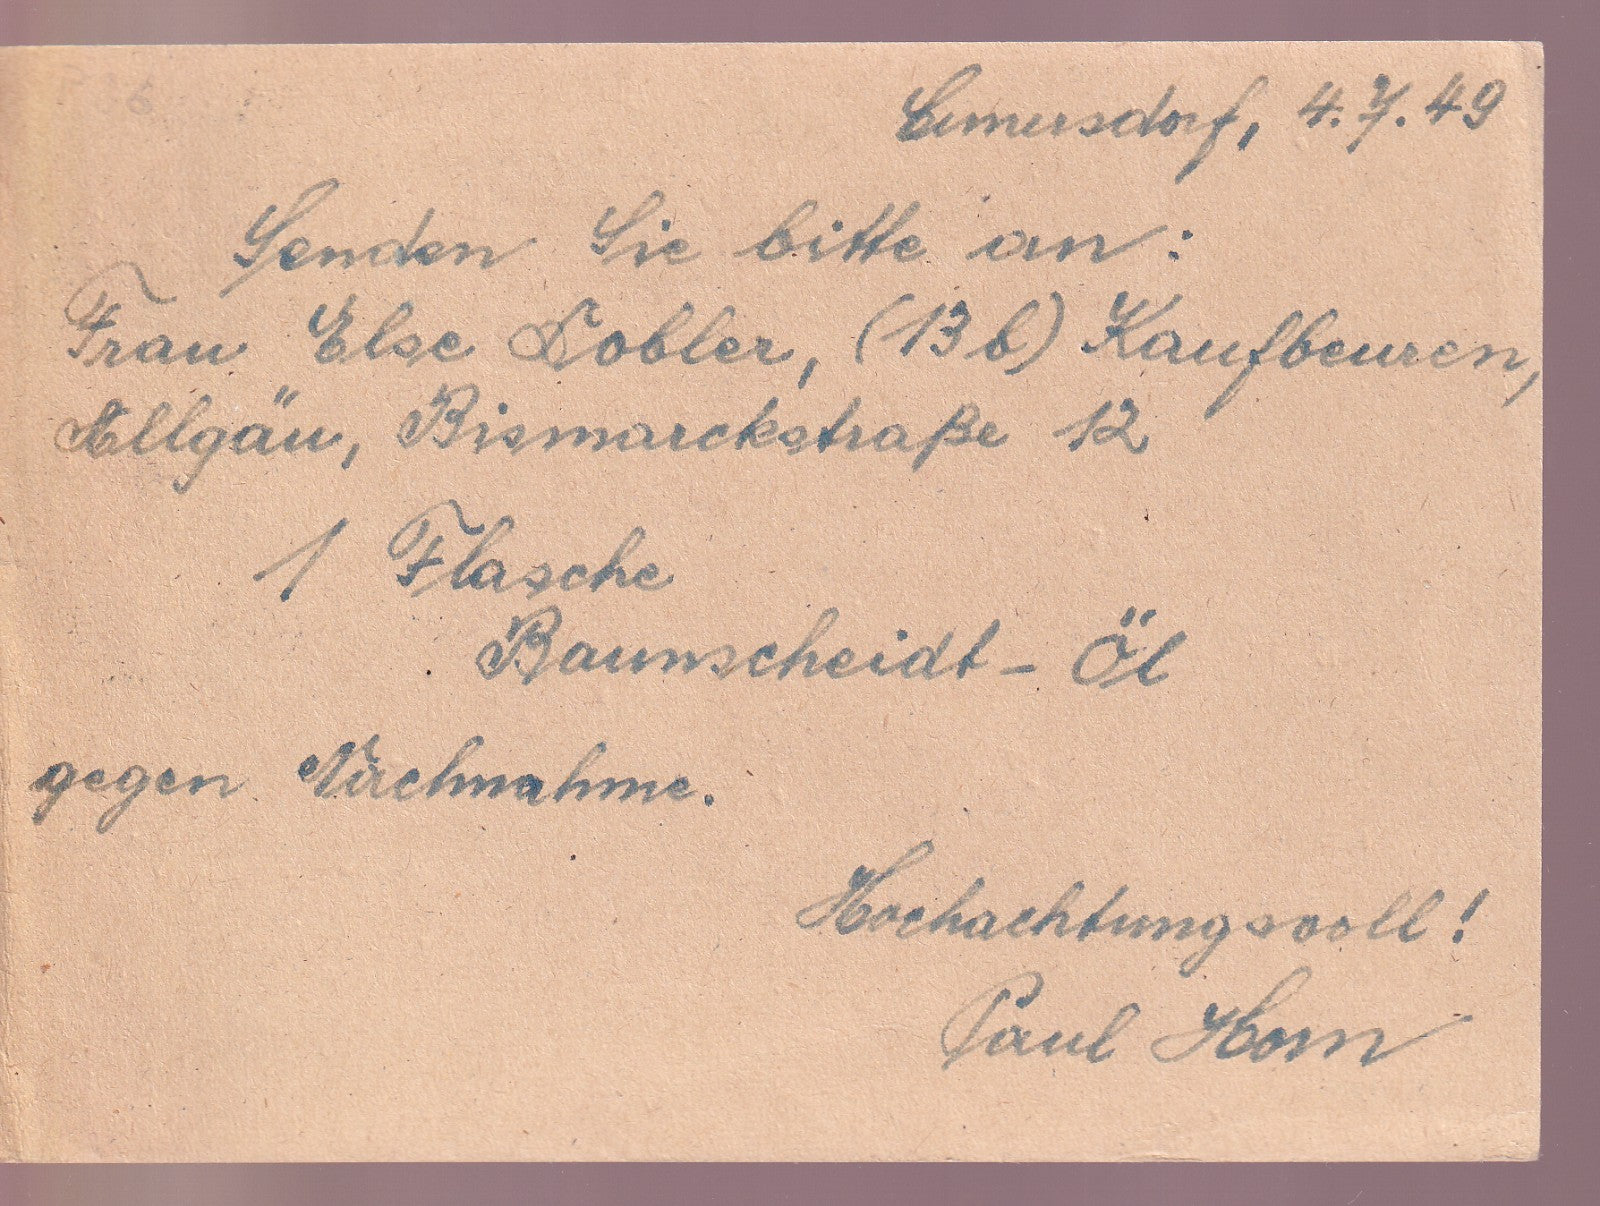 Emersdorf, 4.7.49
Senden Sie bitte an:
Frau Else Dobler, (13 b) Kaufbeuren,
Allgäu, Bismarckstraße 12
1 Flasche
Baunscheidt-Öl
gegen Nachnahme.
Hochachtungsvoll!
Paul Horn